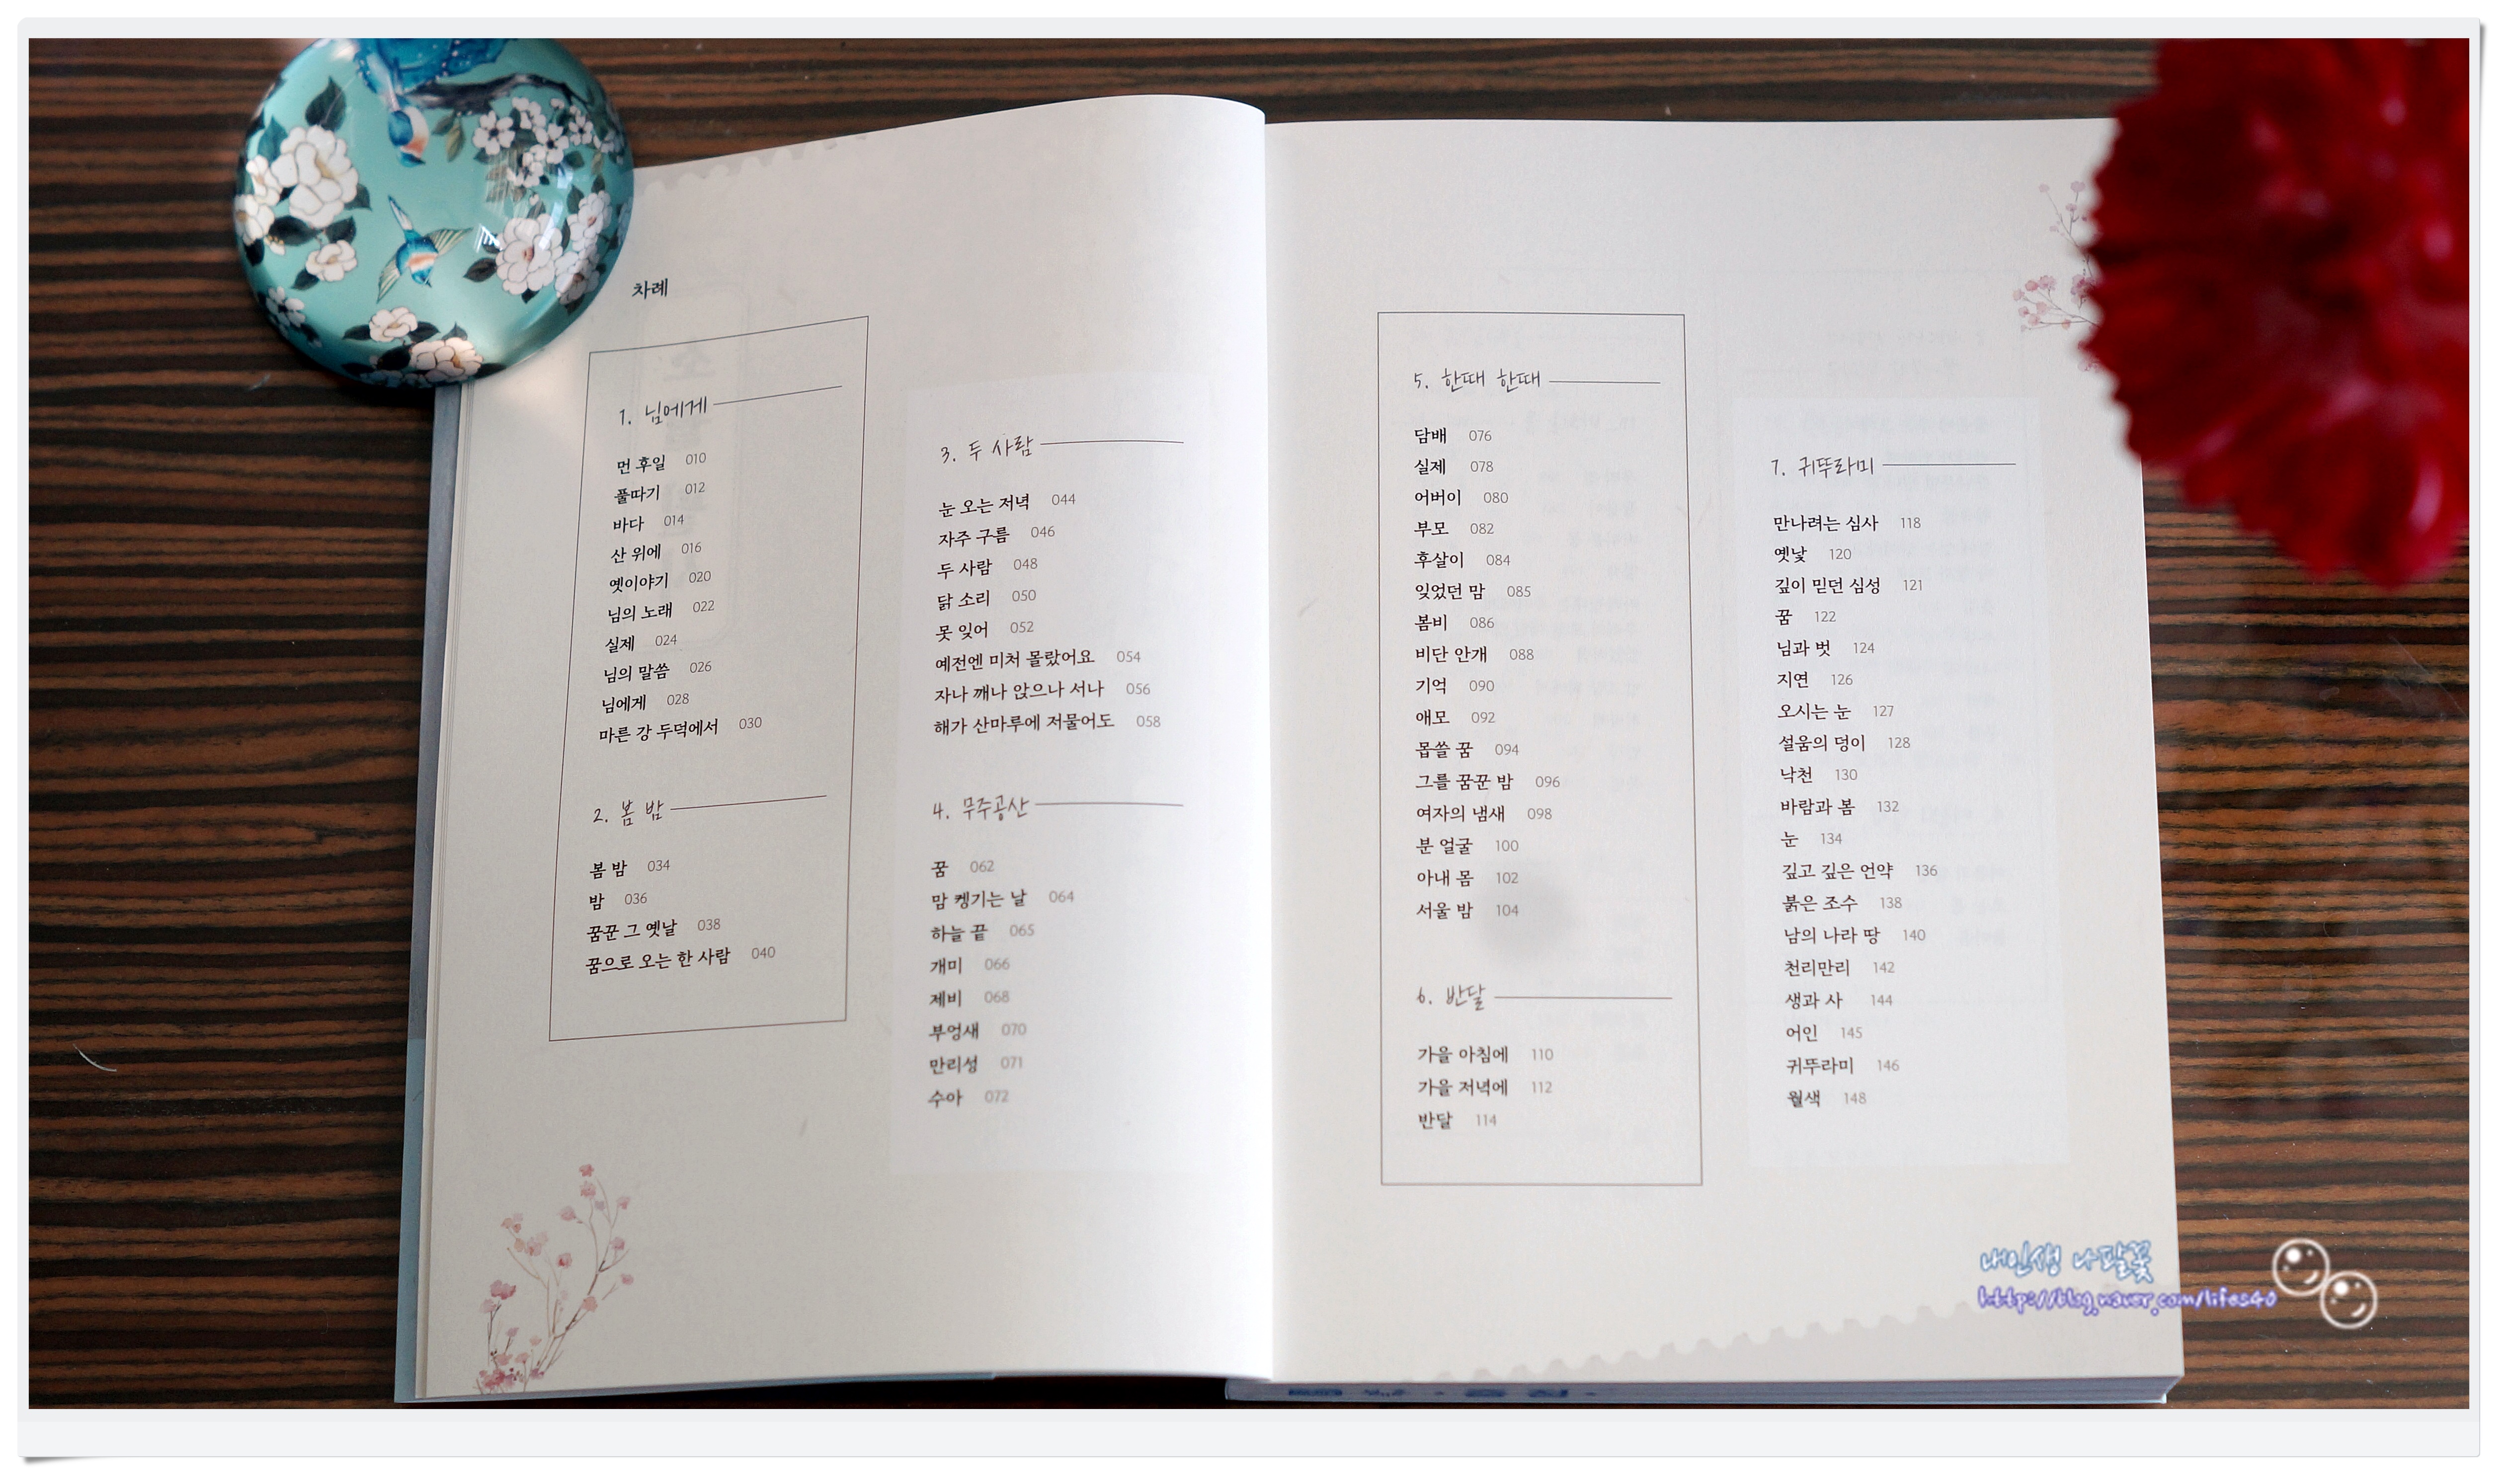 차례
1. 님에게
먼 후일 010
풀따기 012
바다 014
산 위에 016
옛이야기 020
님의 노래 022
실제 024
님의 말씀 026
님에게 028
마른 강 두덕에서 030
2. 봄 밤
봄 밤 034
밤 036
꿈꾼 그 옛날 038
꿈으로 오는 한 사람 040
3. 두 사람
눈 오는 저녁 044
자주 구름 046
두 사람 048
닭 소리 050
못 잊어 052
예전엔 미처 몰랐어요 054
자나 깨나 앉으나 서나 056
해가 산마루에 저물어도 058
4. 무주공산
꿈 062
맘 켕기는 날 064
하늘 끝 065
개미 066
제비 068
부엉새 070
만리성 071
수아 072
5. 한때 한때
담배 076
실제 078
어버이 080
부모 082
후살이 084
잊었던 맘 085
봄비 086
비단 안개 088
기억 090
애모 092
몹쓸 꿈 094
그를 꿈꾼 밤 096
여자의 냄새 098
분 얼굴 100
아내 몸 102
서울 밤 104
6. 반달
가을 아침에 110
가을 저녁에 112
반달 114
7. 귀뚜라미
만나려는 심사 118
옛낯 120
깊이 믿던 심성 121
꿈 122
님과 벗 124
지연 126
오시는 눈 127
설움의 덩이 128
낙천 130
바람과 봄 132
눈 134
깊고 깊은 언약 136
붉은 조수 138
남의 나라 땅 140
천리만리 142
생과 사 144
어인 145
귀뚜라미 146
월색 148
내인생 나팔꽃
http://blog.naver.com/lifes40